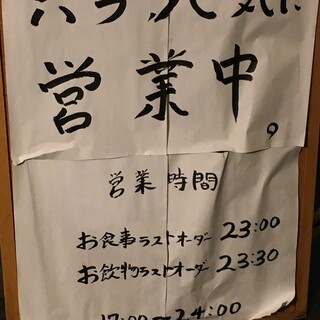 営業中
9
営業時間
お食事ラストオーダー 23:00
お飲物ラストオーダー 23:30
17:00〜24:00